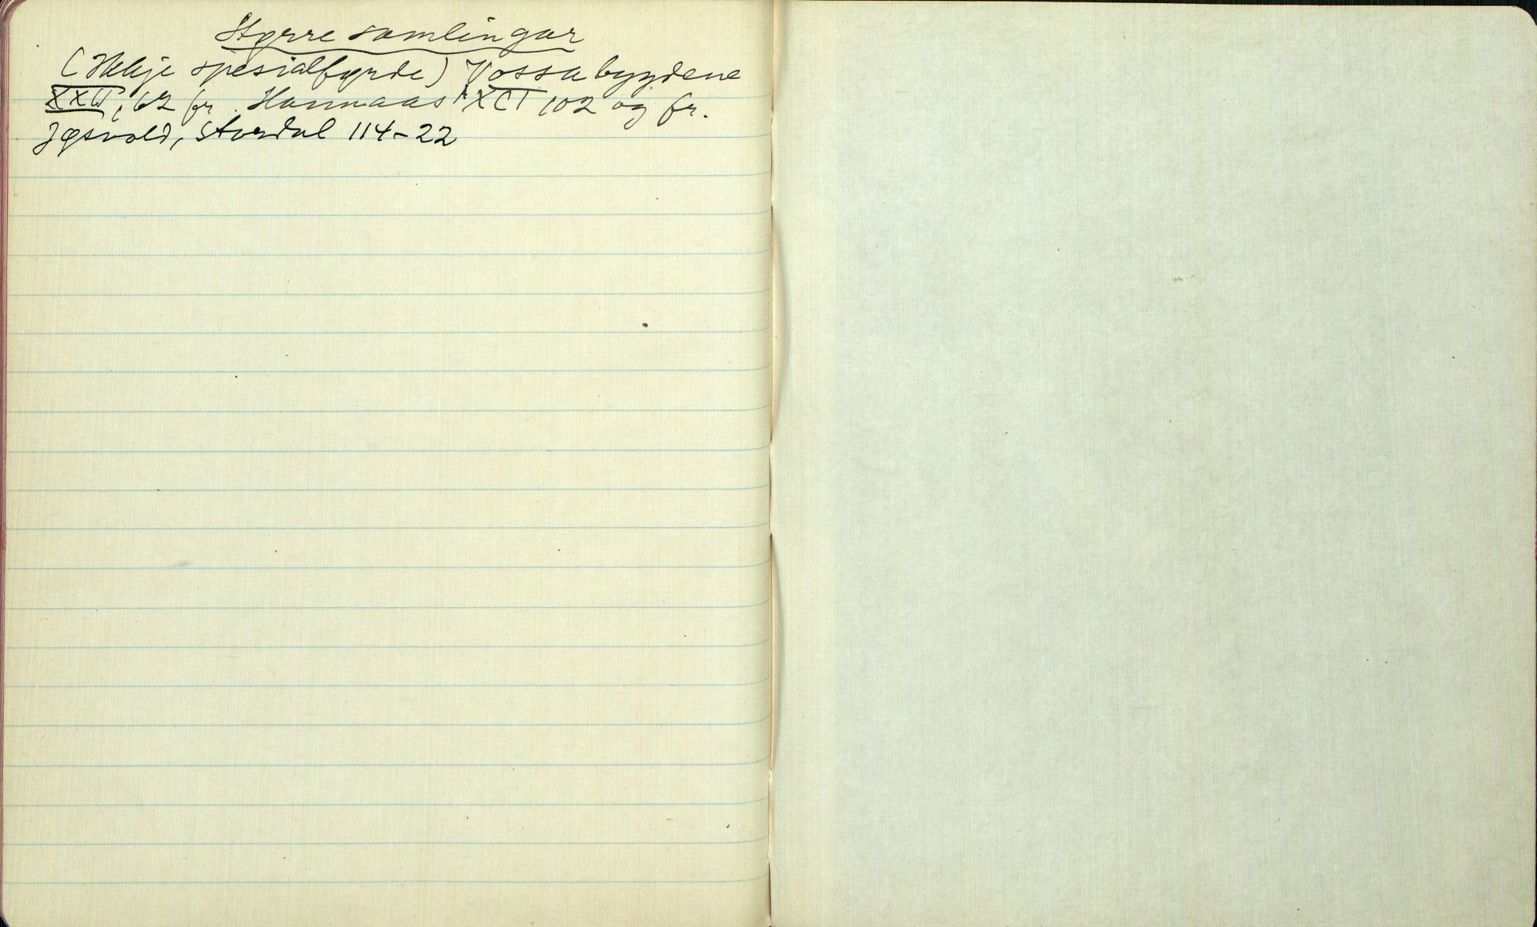 Større samlingar
( spesialfyrde) Vossabygdene
62 fr. Hannaas XCI 102 og fr.
Jøsvold, Stordal 114-22